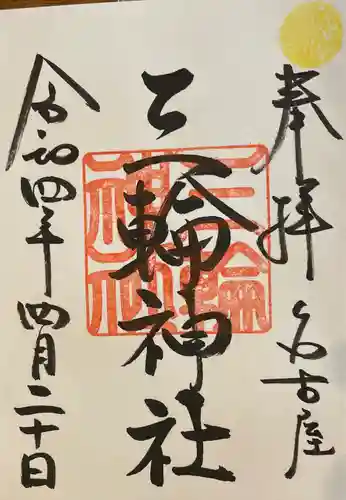 奉拝 名古屋
三輪神社
三輪
神社
令和四年四月二十日